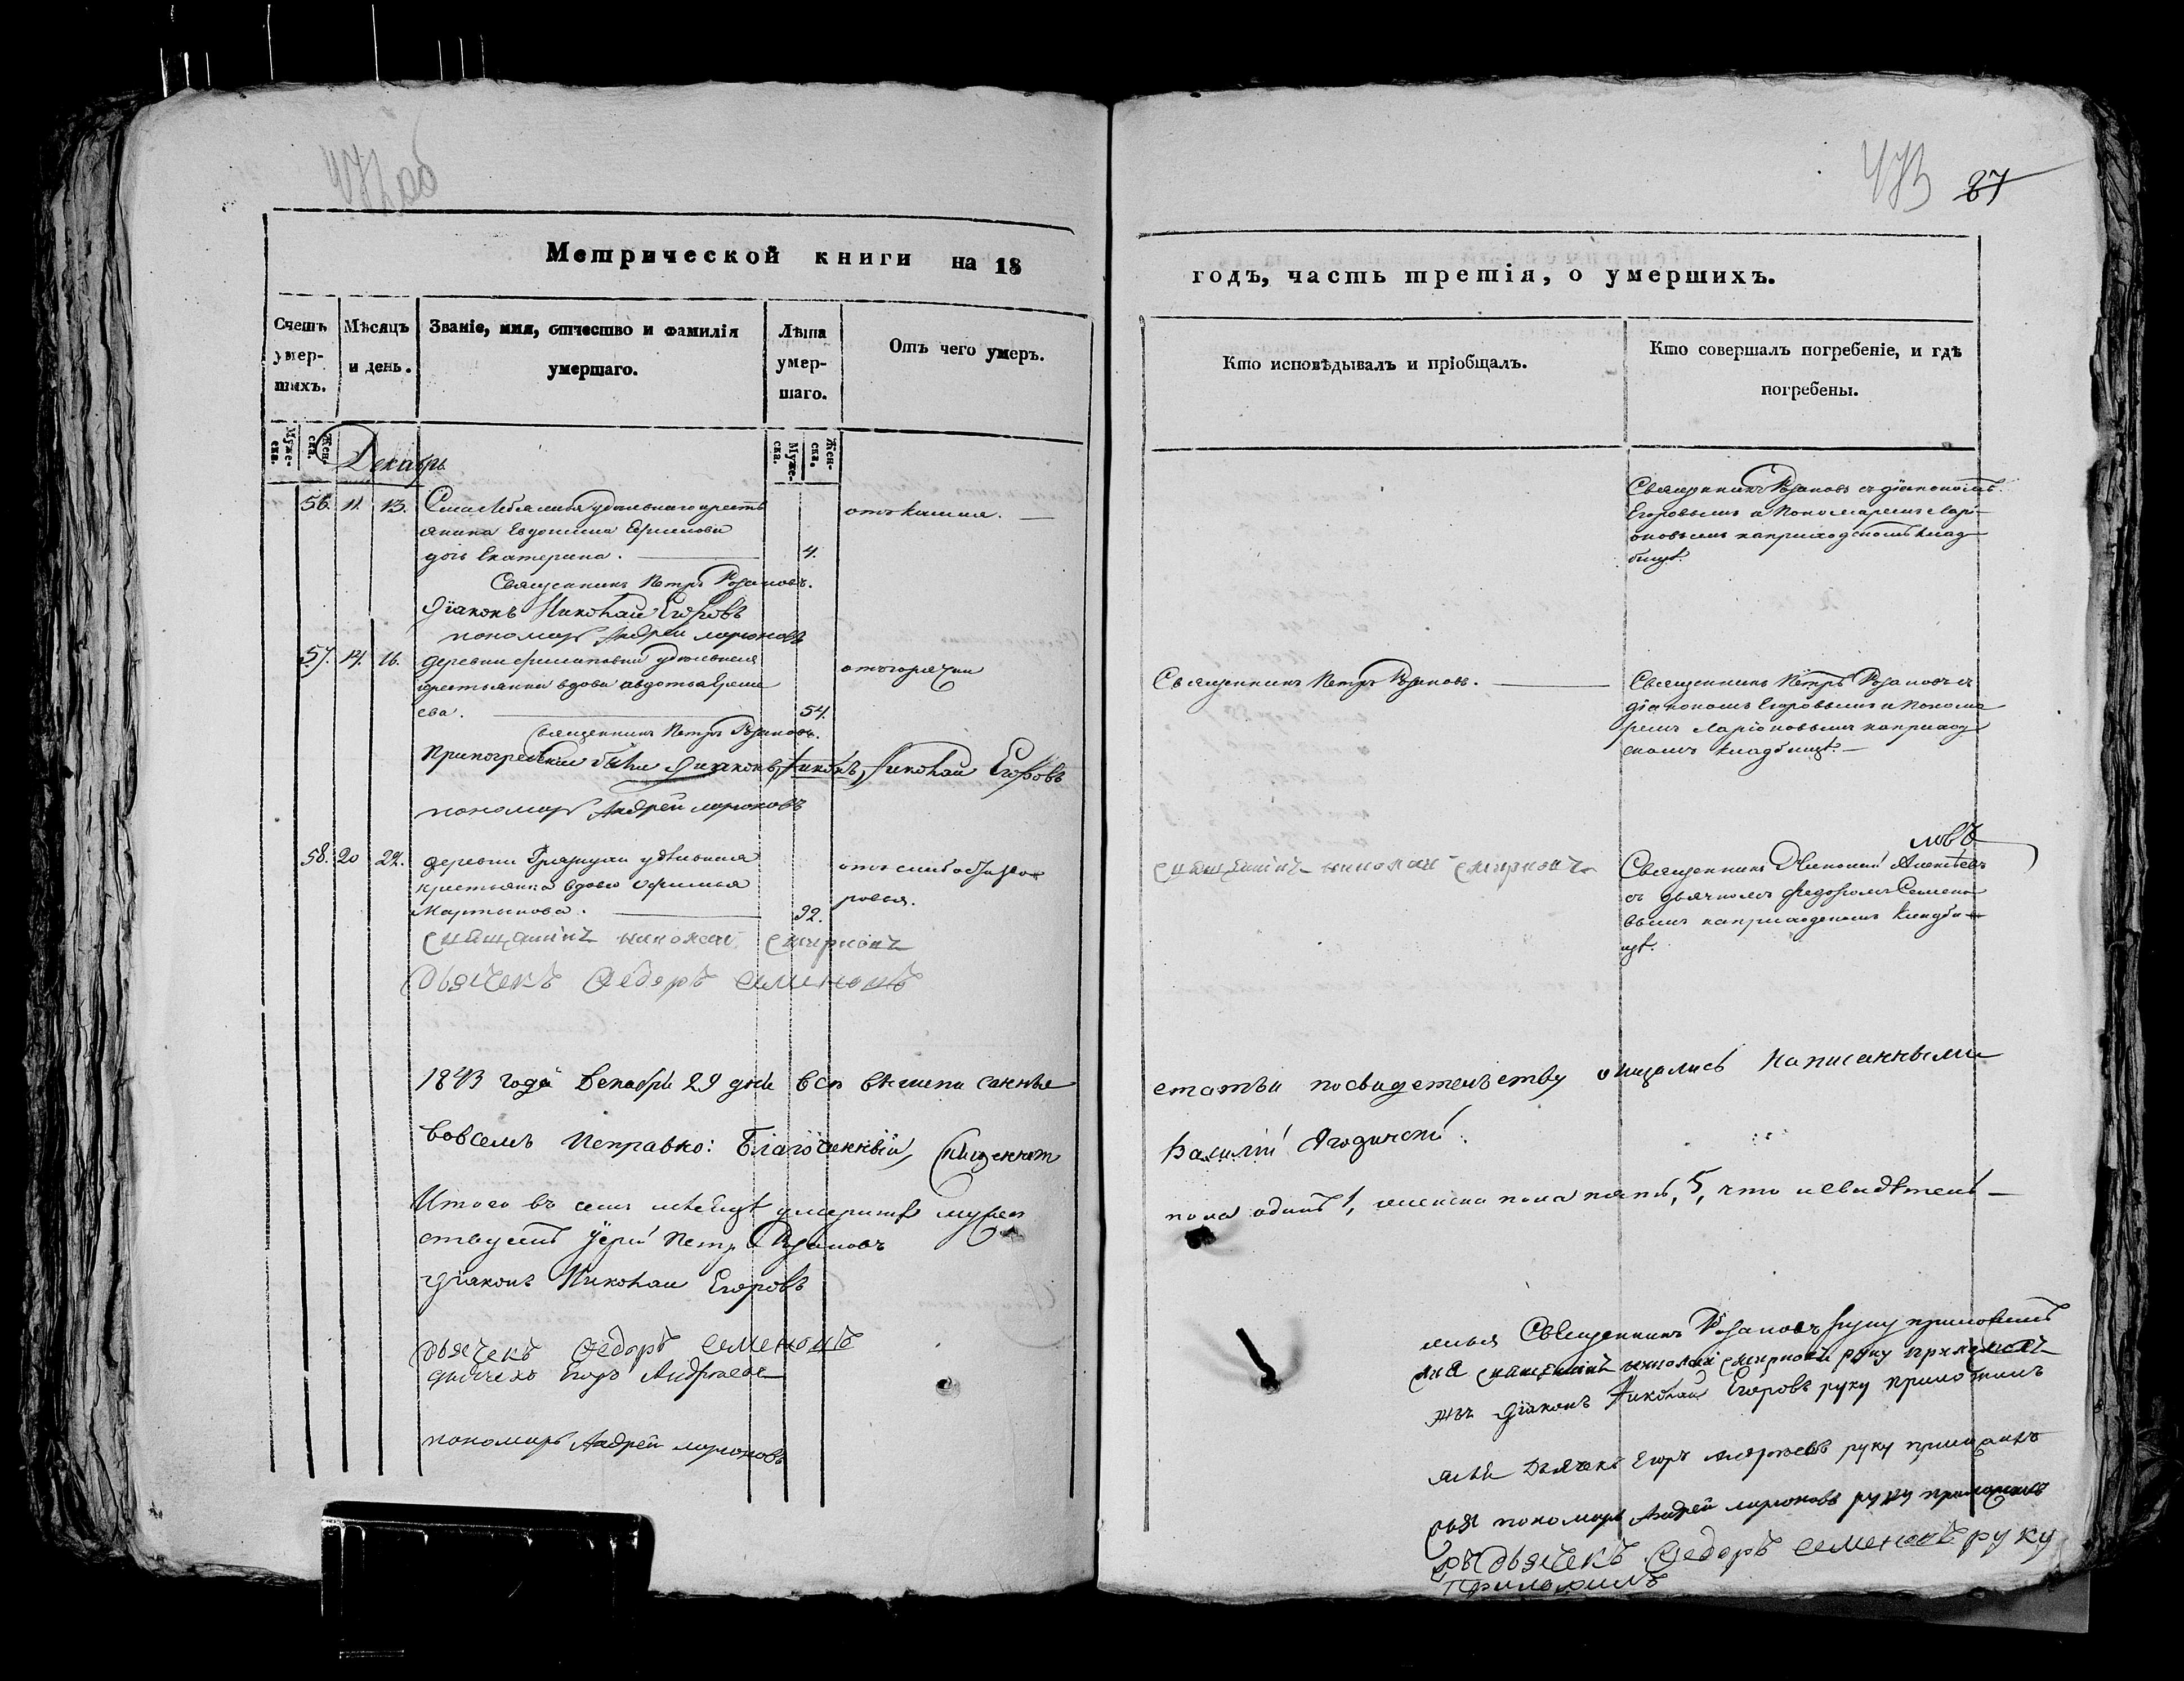 472 об
Метрической книги на 18
Счетъ умер- шихъ.
Мѣсяцъ и день.
Званіе, имя, отчество и фамилія умершаго.
Лѣта умер- шаго.
Отъ чего умеръ.
Муже- ска.
Жен- ска.
Муже- ска.
Жен- ска.
Декабрь
56. 11. 13. Села удѣльнаго кресть
янина Евдокима Ефимова
дочь Екатерина. 4.
отъ кашля.
Священникъ Петръ Розановъ.
Діаконъ Николай Егоровъ
пономарь Андрей Ларионовъ
57. 14. 16. деревни Филиповки удѣльная
крестьянка вдова Авдотья Ереме
ева. 54.
отъ горячки
Священникъ Петръ Розановъ.
При погребении были Диаконъ Николай Егоровъ
пономарь Андрей Ларионовъ
58. 20 22. деревни удѣльная
крестьянка вдова Афимья
Мартынова. 92.
отъ слабаго здо
ровья.
Священникъ Николай Смирновъ
Дьячекъ Федоръ Семеновъ
1843 года Декабря 29 дня всѣ вышеписанные
вовсемъ исправно: Благочинный, Священник
Итого въ семъ мѣсяцѣ умершихъ мужеск
ствуемъ Іерей Петръ Розановъ
Діаконъ Николай Егоровъ
Дьячекъ Федоръ Семеновъ
дьячекъ Егоръ Андреевъ
пономарь Андрей Ларионовъ
473 87
годъ, часть третія, о умершихъ.
Кто исповѣдывалъ и пріобщалъ.
Кто совершалъ погребеніе, и гдѣ погребены.
Священникъ Розановъ съ діакономъ
Егоровымъ и Пономаремъ Ларі-
оновымъ на приходскомъ клад
бищѣ.
Священникъ Петръ Розановъ.
Священникъ Петръ Розановъ съ
діакономъ Егоровымъ и Понома
ремъ Ларіоновымъ на приход
скомъ кладбищѣ.
Священникъ Николай Смирновъ
Священникъ Николай
съ дьячкомъ Федоромъ Семено
вымъ на приходскомъ кладби
щѣ.
статьи по свидетельству оказались написанными
Василій Ягодинскій.
пола одинъ 1, женска пола пять, 5, что и свидѣтель-
Священникъ Розановъ руку приложилъ
священникъ Николай Смирновъ руку приложилъ
Діаконъ Николай Егоровъ руку приложилъ
Дьячекъ Егоръ Андреевъ руку приложилъ
пономарь Андрей Ларионовъ руку приложилъ
Дьячекъ Федоръ Семеновъ руку
приложилъ